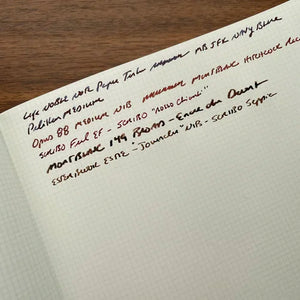 Life Noble Note Paper Test MB JFK Navy Blue
Pelikan Medium
Opus 88 Medium Nib Montblanc Hitchcock Red
Scribo Feel EF - Scribo "Rosso Chianti"
Montblanc 149 Broad - Encre du Desert
Esterbrook Estie - "Journaler" Nib - Scribo Seppia